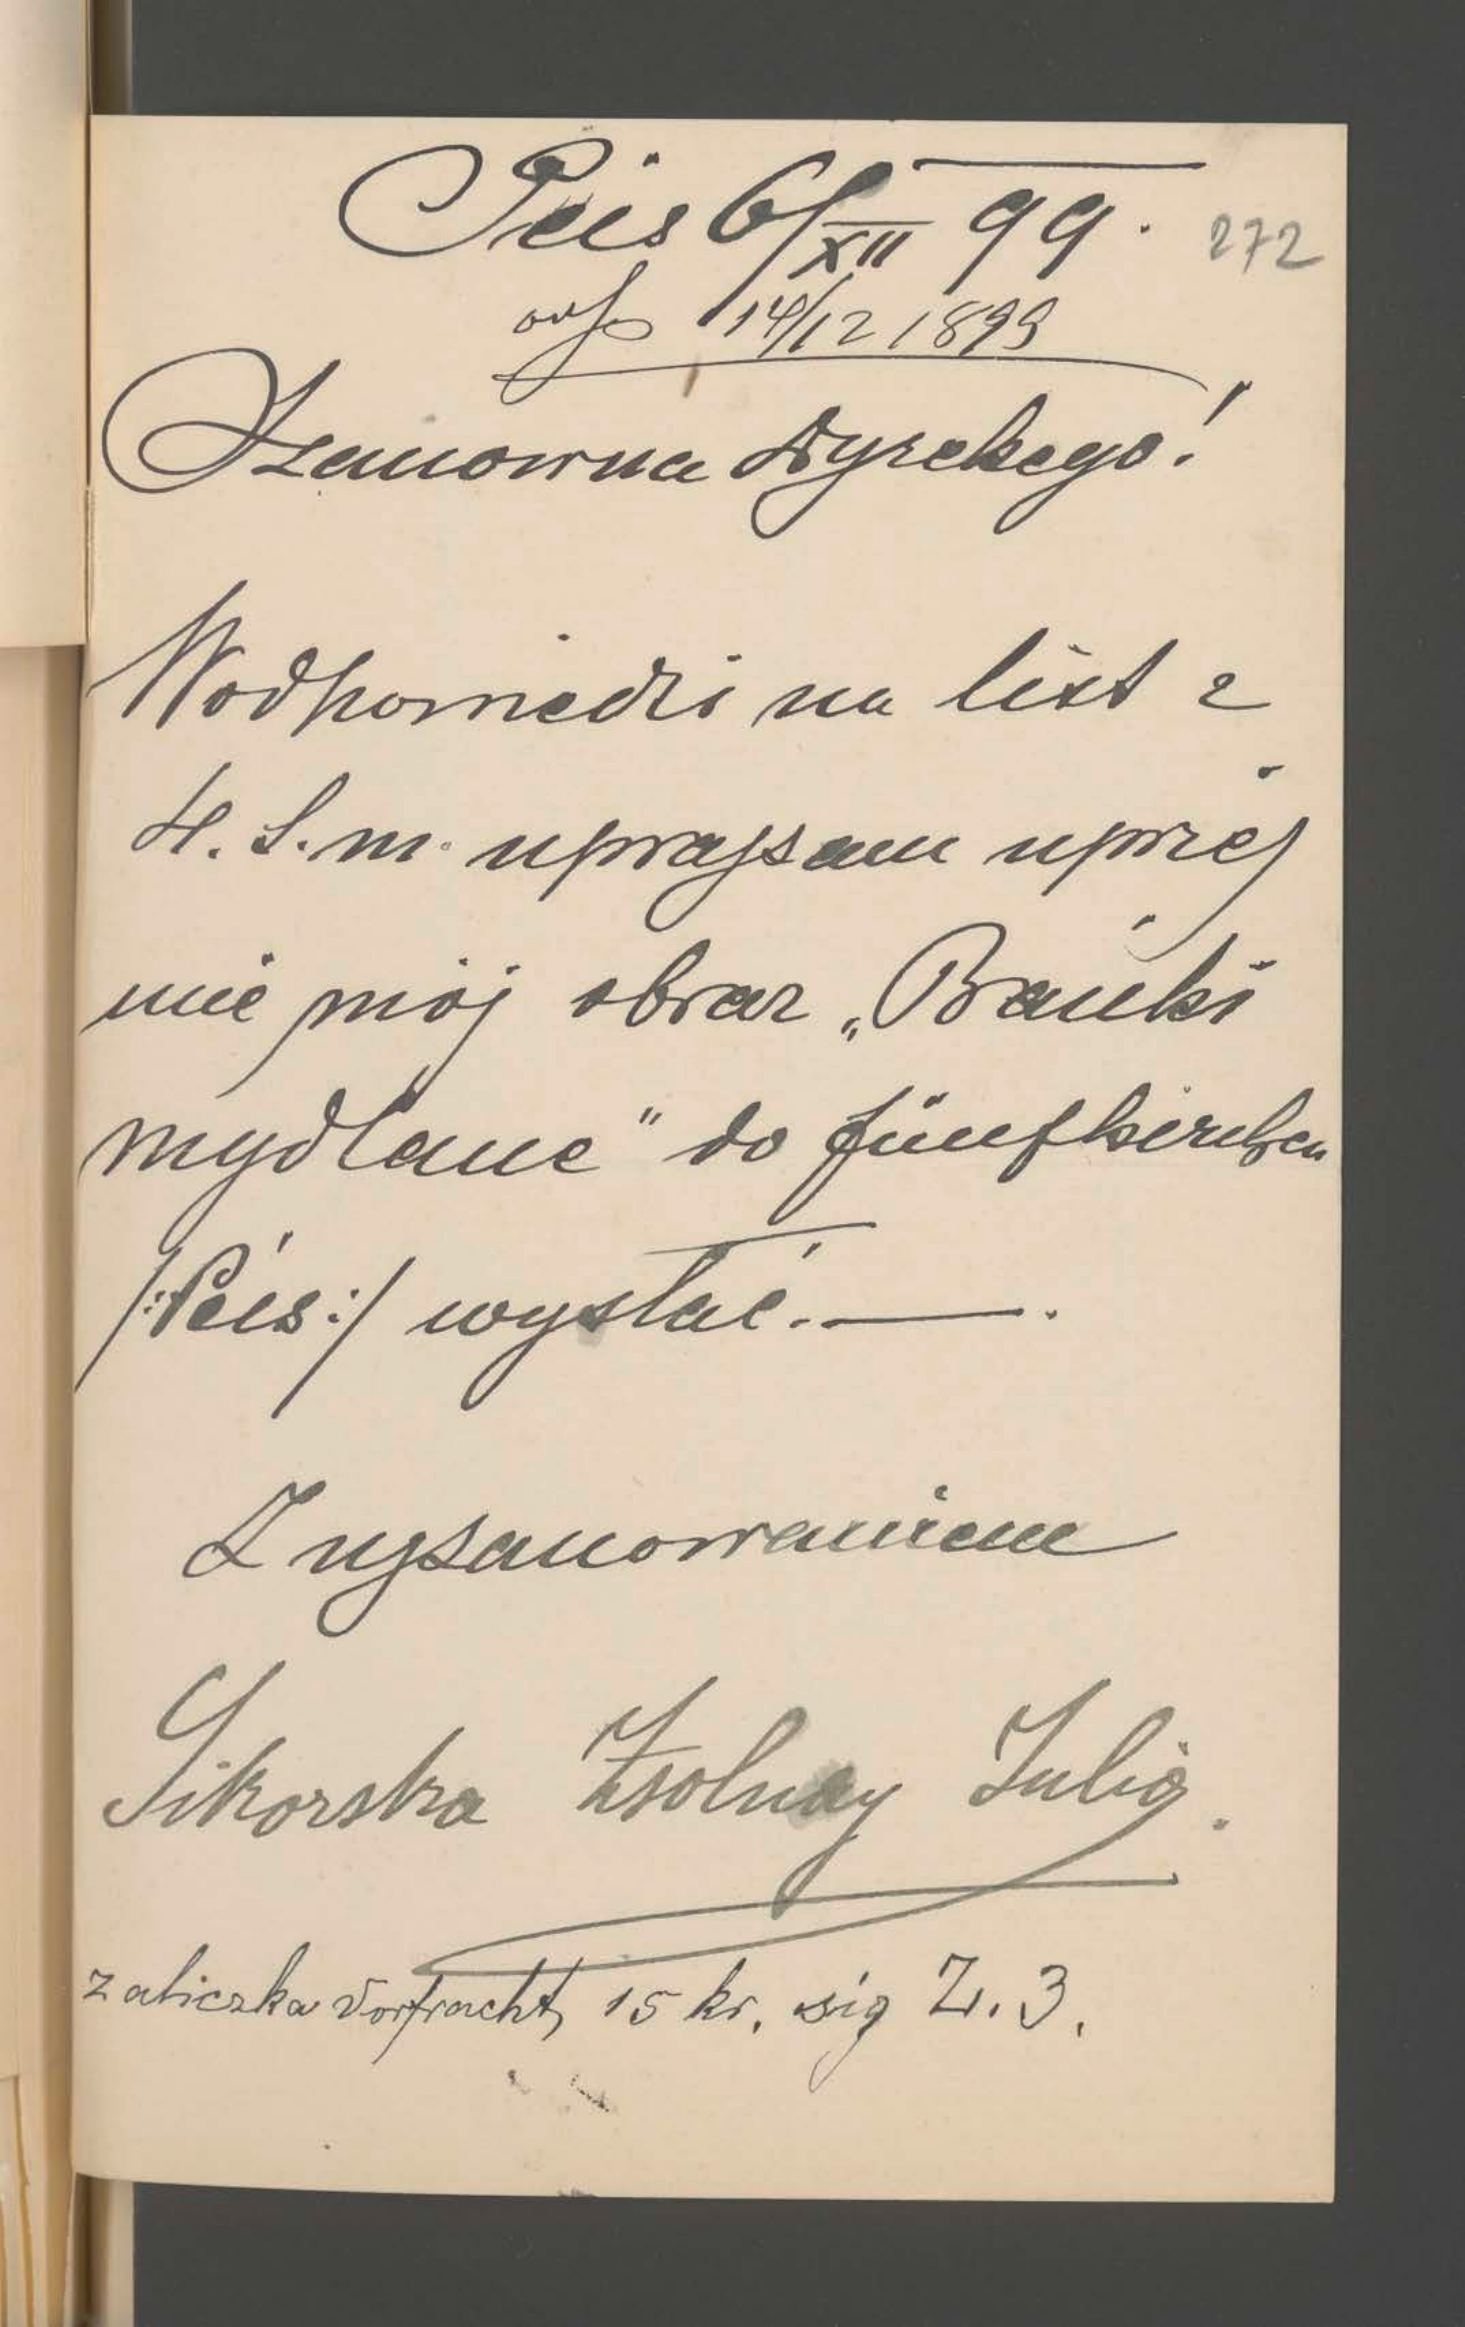 Pécs 6/XII 99.
272
14/12 1899
Szanowna Dyrekcyo!
W odpowiedzi na list z
4. b. m. upraszam uprzej
mie mój obraz „Bańki
mydlane" do Fünfkirchen
/:Pécs:/ wysłać. — .
Z uszanowaniem
Sikorska Zsolnay Julia.
zaliczka Vorfracht, 15 kr. sig Z. 3.